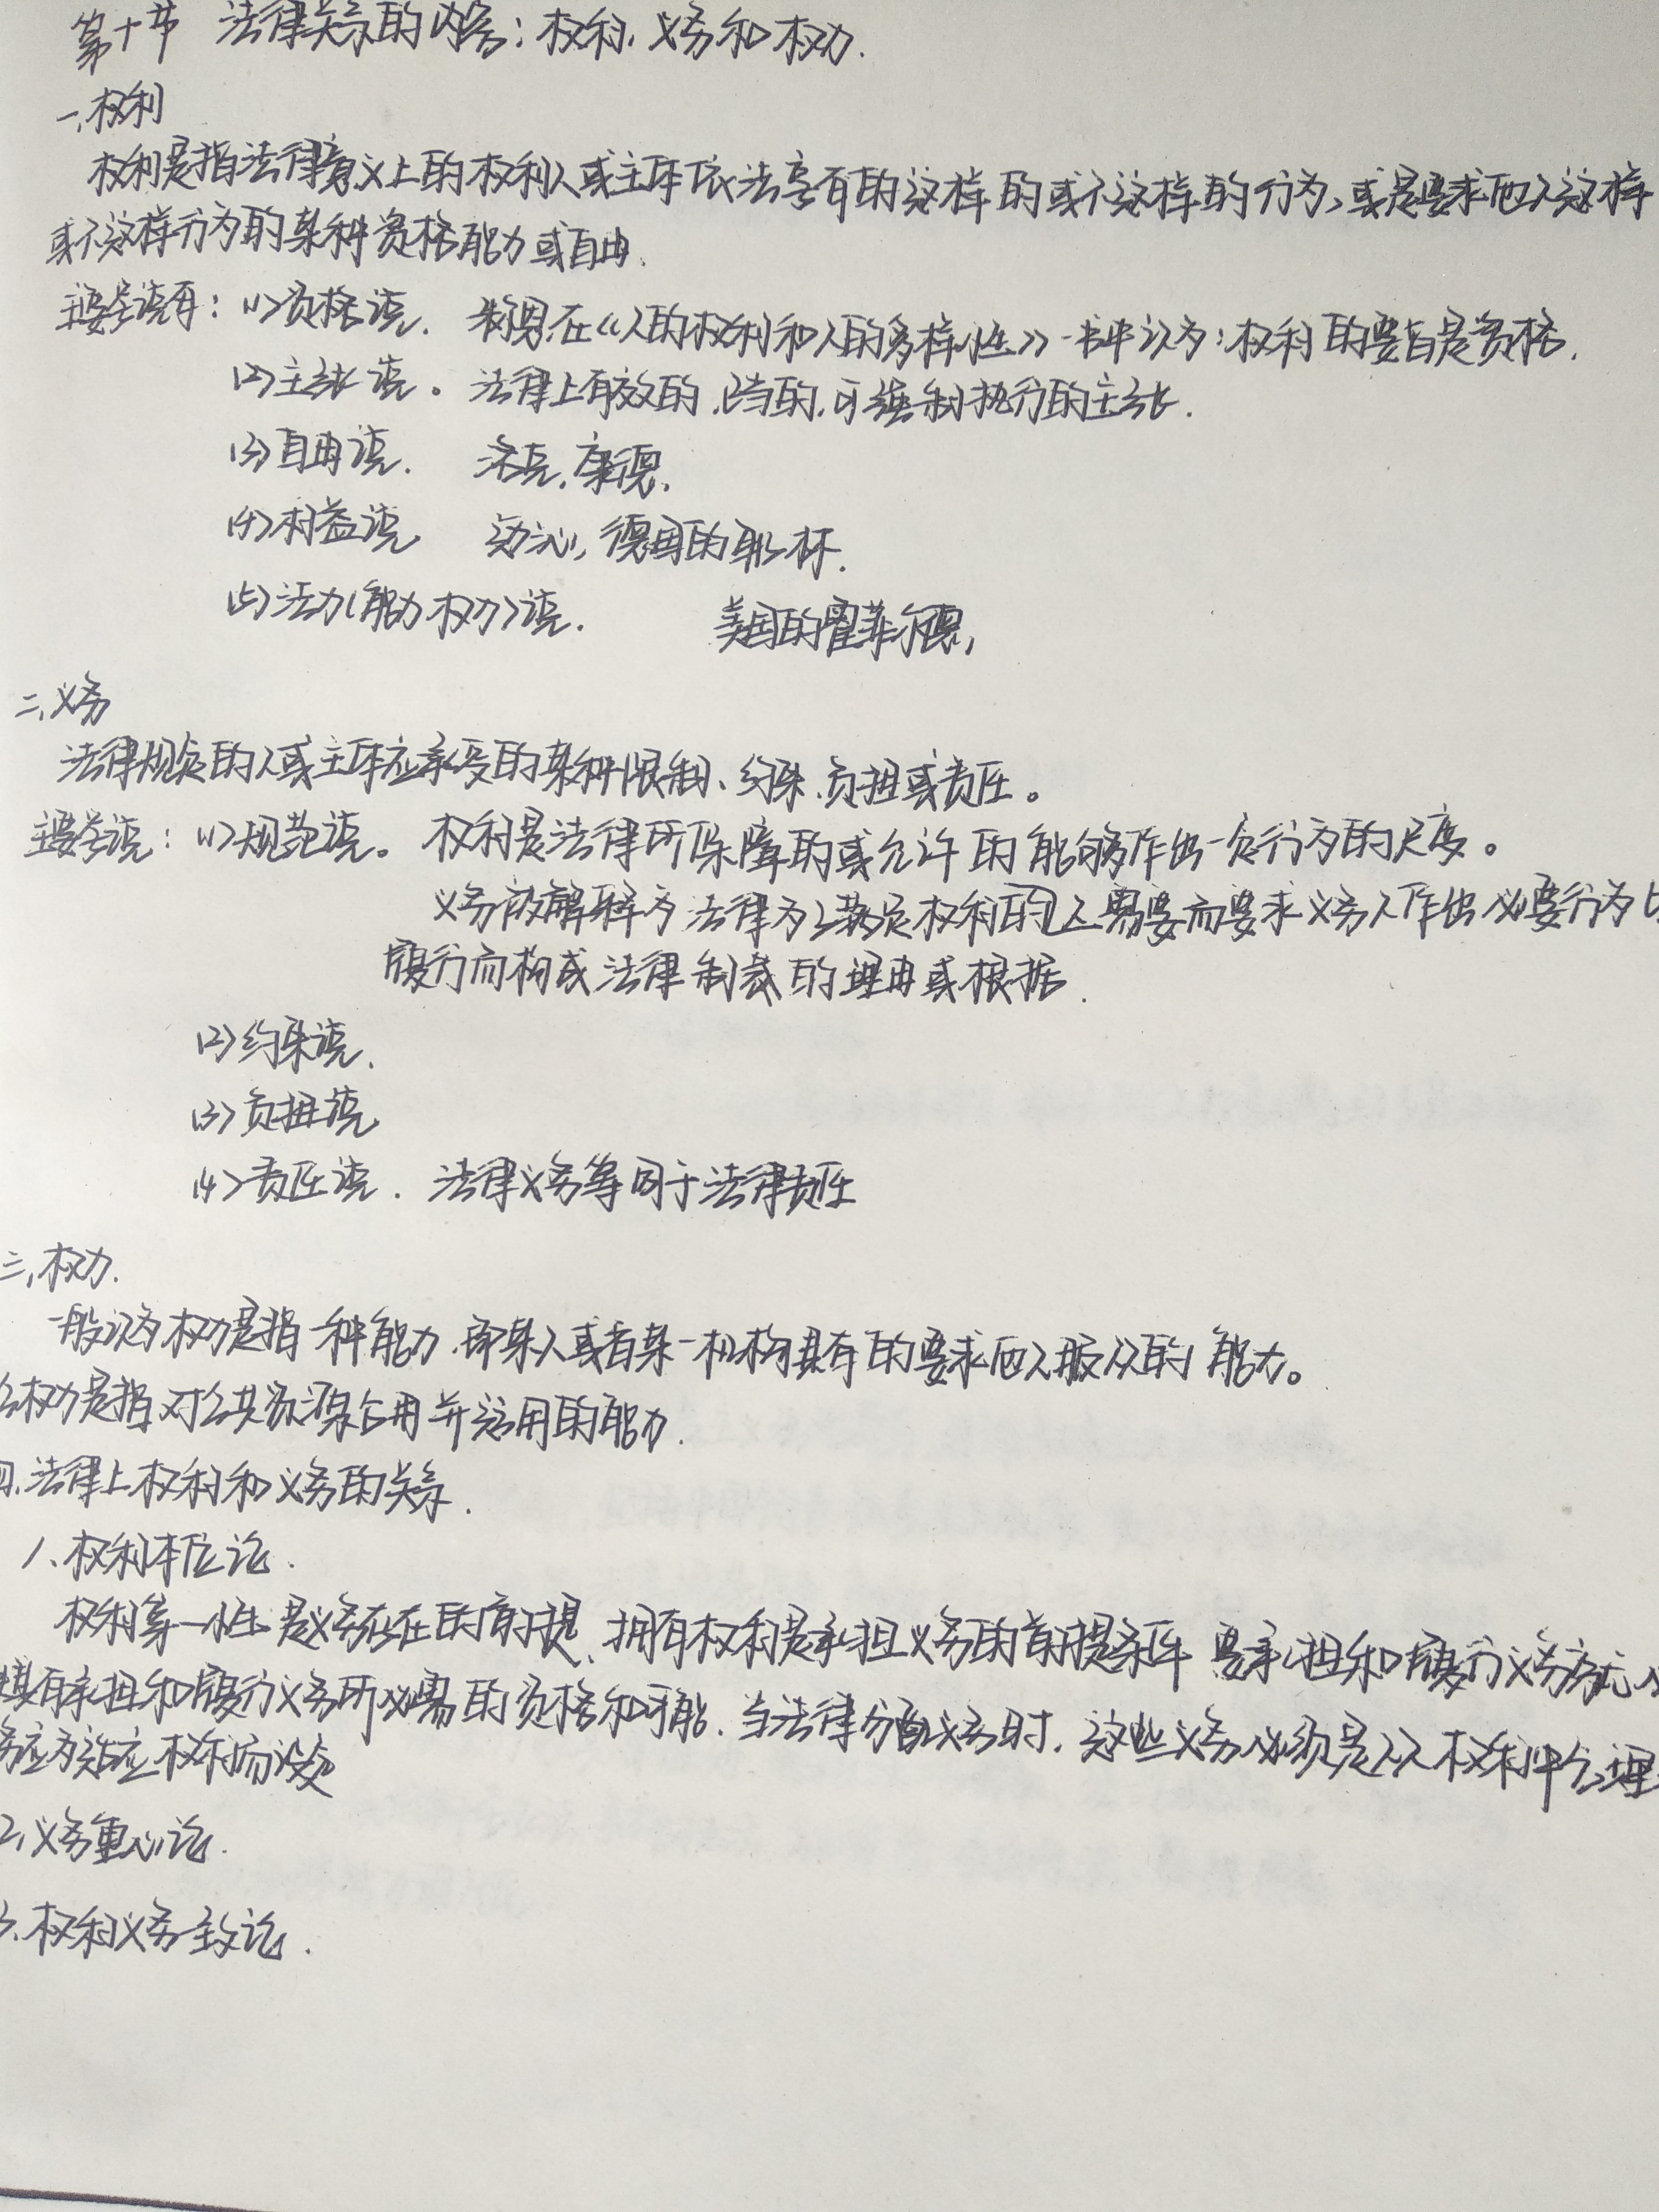 第十节 法律关系的内容:权利、义务和权力.
一、权利
权利是指法律意义上的权利人或主体依法享有的这样的或不这样的行为、或是要求他人这样
或不这样行为的某种资格能力或自由.
主要学说有:(1)资格说. 米尔恩在《人的权利和人的多样性》一书中认为:权利的要旨是资格.
(2)主张说。法律上有效的,正当的,可强制执行的主张.
(3)自由说. 洛克,康德,
(4)利益说 边沁,德国的耶林.
(5)法力(能力权力)说. 美国的霍菲尔德,
二、义务
法律规定的人或主体应承受的某种限制、约束、负担或责任。
主要学说:(1)规范说。权利是法律所保障的或允许的能够作出一定行为的尺度。
义务被解释为法律为了满足权利的人需要而要求义务人作出必要行为
履行而构成法律制裁的理由或根据.
(2)约束说.
(3)负担说
(4)责任说. 法律义务等同于法律责任
三、权力.
一般认为权力是指一种能力.即某人或者某一机构具有的要求他人服从的能力。
公权力是指对公共资源占用并运用的能力.
四.法律上权利和义务的关系.
1、权利本位论.
权利第一性是义务存在的前提、拥有权利是承担义务的前提条件 要承担和履行义务就
具有承担和履行义务所必需的资格和可能.当法律分配义务时.这些义务必须是从权利中合理
应为 应权利而设定
2、义务重心论.
3.权利义务一致论.